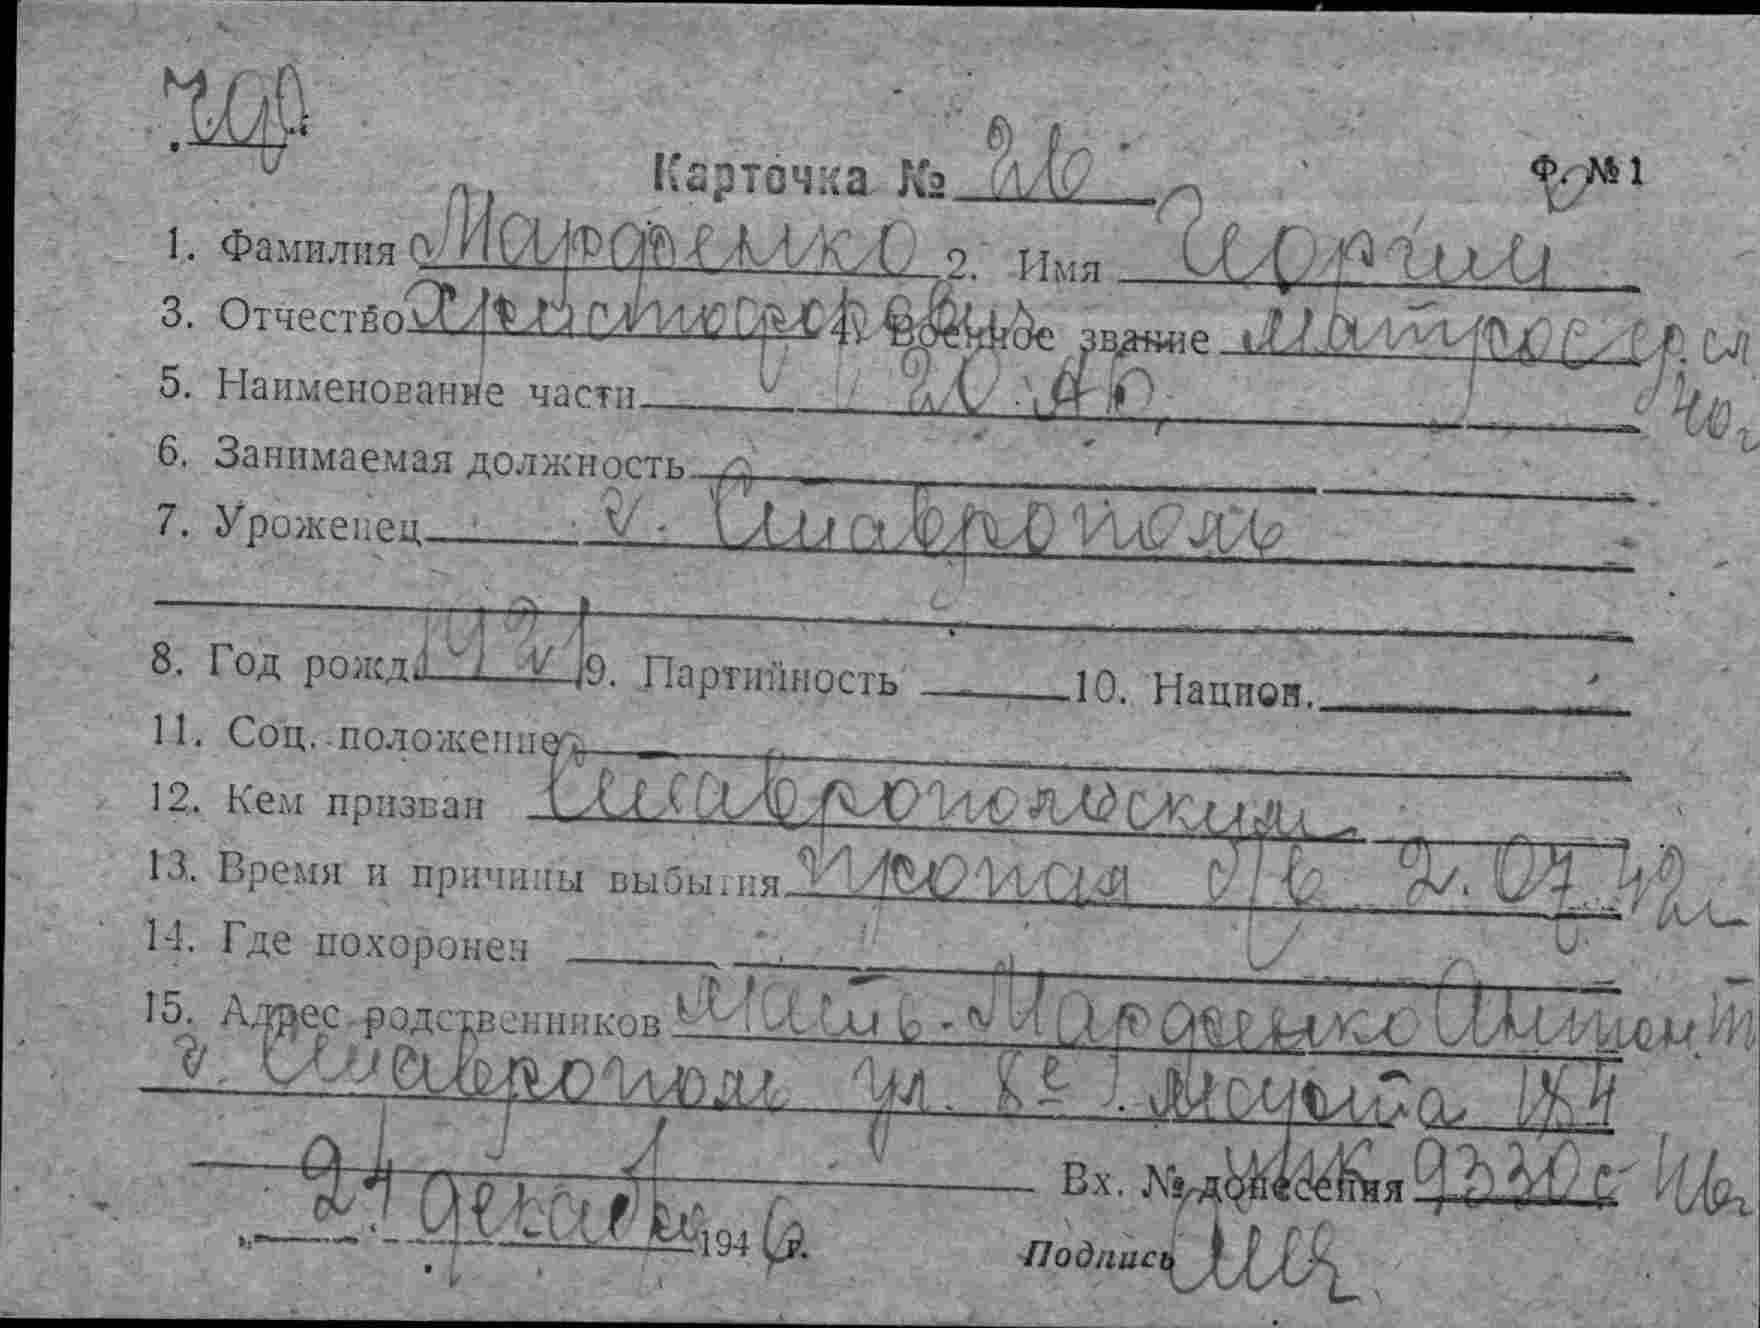 Карточка № 216 Ф. № 1
1. Фамилия Мардоенко 2. Имя Георгий
3. Отчество Христофорович 4. Военное звание Матрос ср. сл
5. Наименование части 20 АБ 40 г
6. Занимаемая должность
7. Уроженец г. Ставрополь
8. Год рожд. 1921 9. Партийность 10. Национ.
11. Соц. положение
12. Кем призван Ставропольским
13. Время и причины выбытия Пропал б/в 2.07.42г
14. Где похоронен
15. Адрес родственников Мать -
г. Ставрополь ул. 8е Марта 184
Вх. № донесения 9330с 46г
24 декабря 1946 г.
Подпись